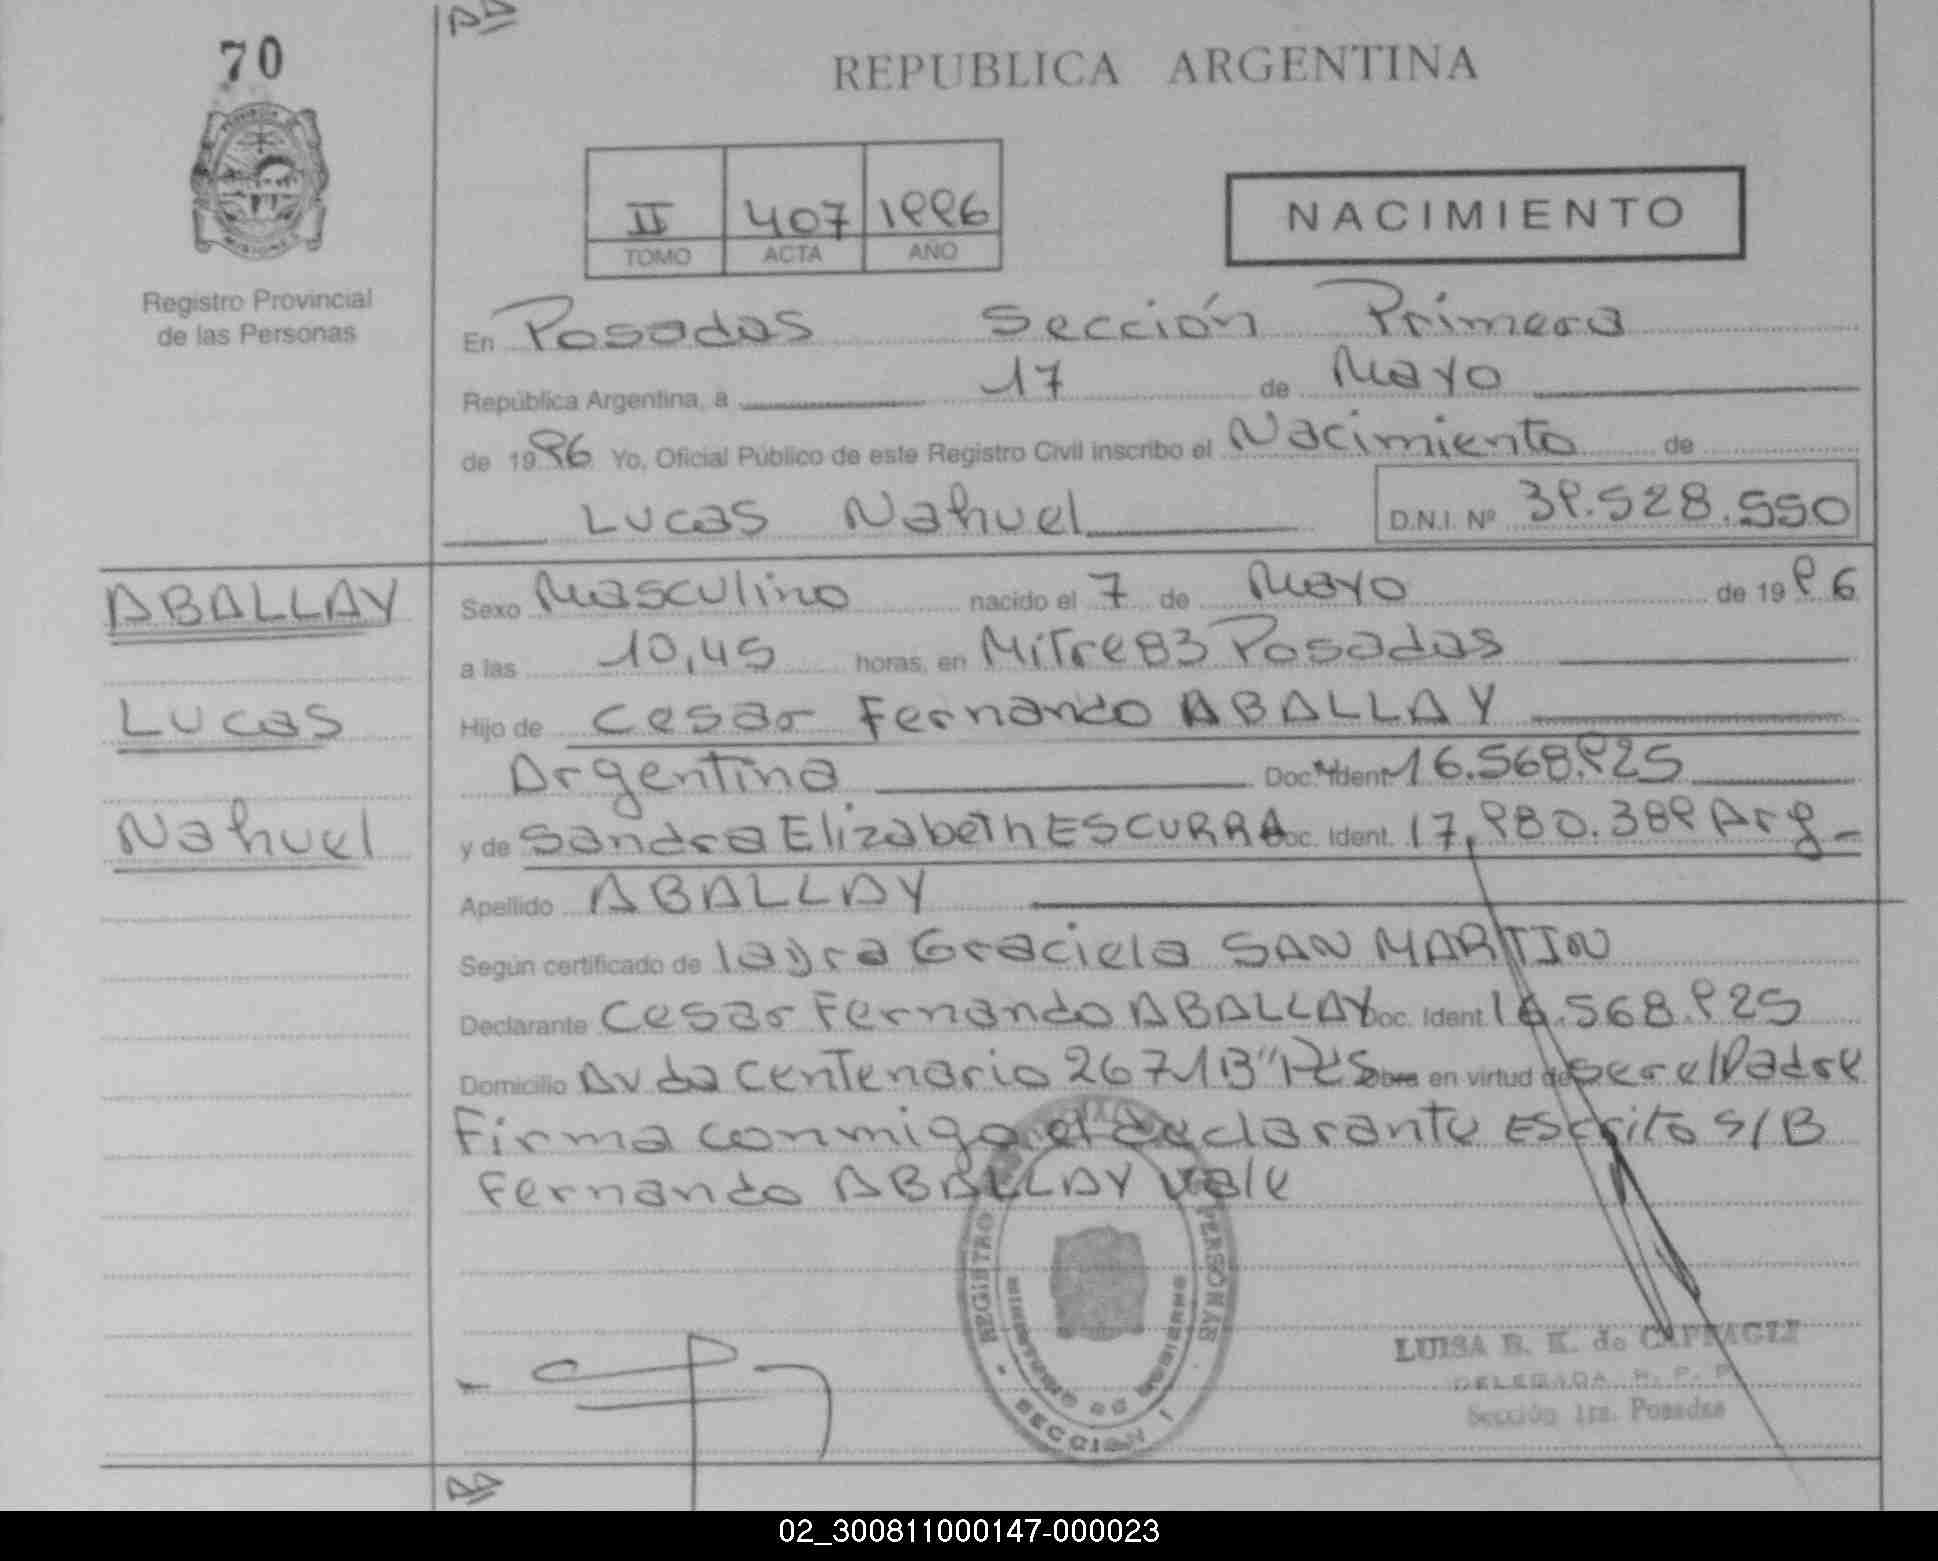 70
REPUBLICA ARGENTINA
II 407 1996
TOMO ACTA AÑO
NACIMIENTO
Registro Provincial
de las Personas
En Posadas Sección Primera
República Argentina, a 17 de Mayo
de 1996 Yo, Oficial Público de este Registro Civil inscribo el Nacimiento de
Lucas Nahuel D.N.I. Nº 39.528.550
ABALLAY
Lucas
Nahuel
Sexo Masculino nacido el 7 de Mayo de 1996
a las 10,45 horas, en Mitre 83 Posadas
Hijo de Cesar Fernando ABALLAY
Argentina Doc. Ident. 16.568.925
y de Sandra Elizabeth ESCURRA Doc. Ident. 17.980.389 Arg
Apellido ABALLAY
Según certificado de Laura Graciela SAN MARTIN
Declarante Cesar Fernando ABALLAY Doc. Ident. 16.568.925
Domicilio Avda Centenario 2671 B" Pds Obra en virtud de ser el Padre
Firma conmigo el declarante Escrito S/B
Fernando ABALLAY vale
REGISTRO PERSONAS
MINISTERIO DE GOBIERNO
SECCION 1
LUISA B. K. de CAFFAGLI
DELEGADA R. P. P.
Sección 1ra. Posadas
02_300811000147-000023